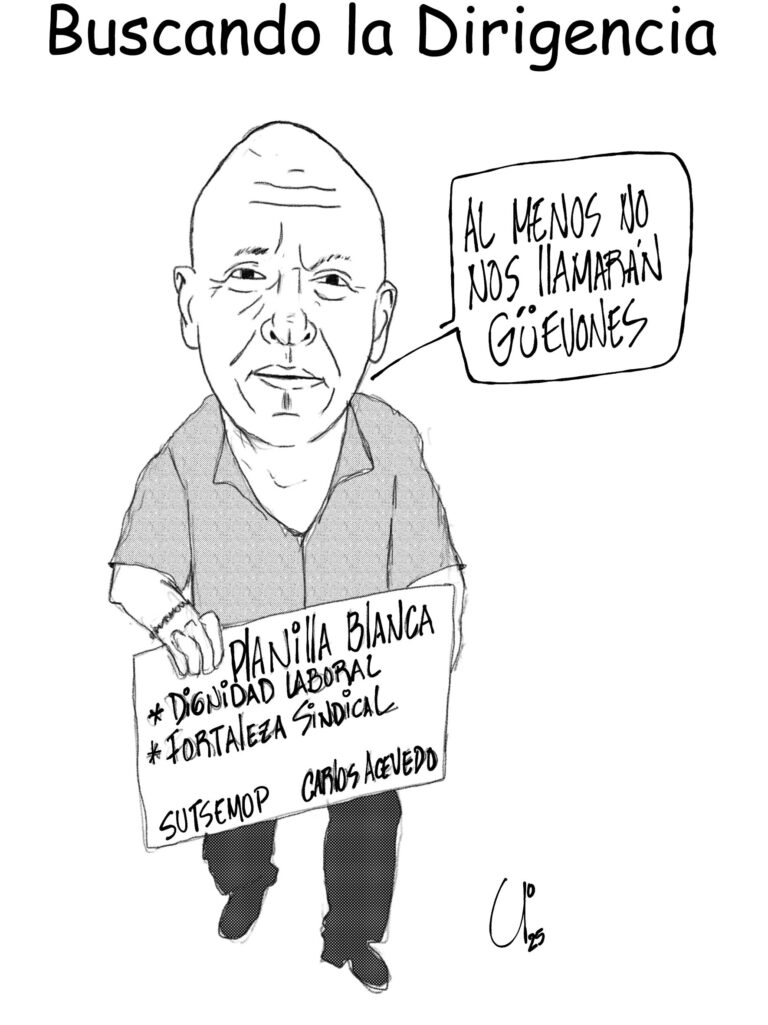 Buscando la Dirigencia
AL MENOS NO
NOS llAMARÁN
GÜEVONES
PlANillA BlANCA
* DiGNiDAD LABORAL
* FORTAlEZA SiNDiCAL
SUTSEMOP CARlOS ACEVEDO
25